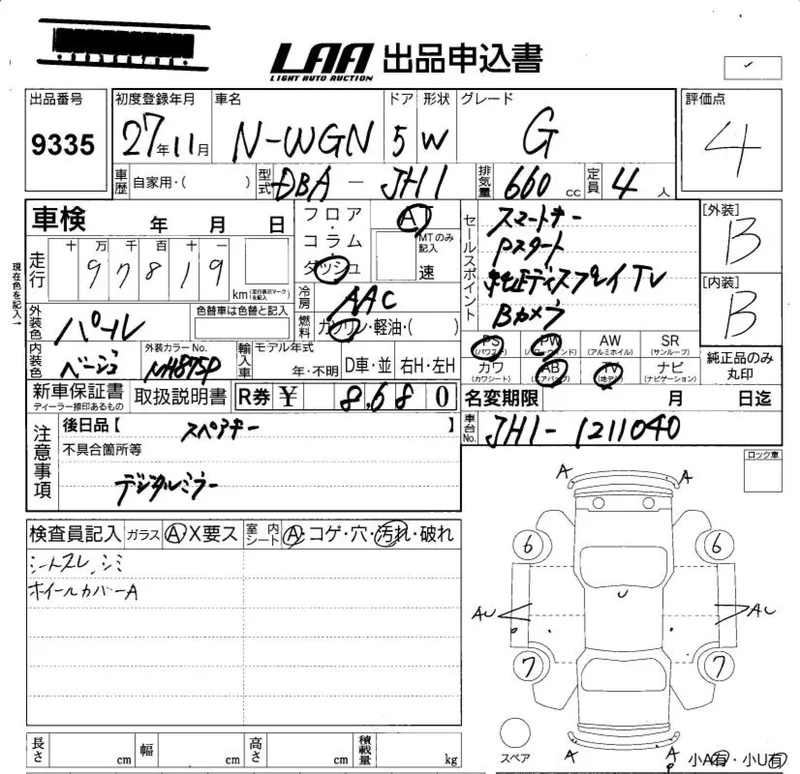 LAA 出品申込書
LIGHT AUTO AUCTION
出品番号 9335
初度登録年月 27年11月
車名 N-WGN
ドア 5
形状 W
グレード G
評価点 4
車歴 自家用・( )
型式 DBA - JH1
排気量 660 cc
定員 4 人
車検 年 月 日
フロア・コラム・ダッシュ
A
MTのみ記入
速
セールスポイント
スマートキー
Pスタート
純正ディスプレイTV
Bカメラ
[外装] B
[内装] B
現在色を記入→
走行 十 万 千 百 十 一
97819 km (走行表示マークを記入)
冷房 AAC
燃料 ガソリン・軽油・( )
外装色 パール
色替車は色替と記入
内装色 ベージュ
外装カラーNo. NH875P
輸入車 モデル年式 年・不明
D車・並 右H・左H
PS (パワステ) PW (パワーウィンド) AW (アルミホイル) SR (サンルーフ)
カワ (カワシート) AB (エアバック) TV (地デジ) ナビ (ナビゲーション)
純正品のみ丸印
新車保証書 ディーラー捺印あるもの
取扱説明書
R券 ¥ 8,680
名変期限 月 日迄
車台No. JH1-1211040
注意事項
後日品【 スペアキー 】
不具合箇所等
デジタルミラー
ロック車
検査員記入 ガラス A X要ス 室内シート A・コゲ・穴・汚れ・破れ
シートスレ、シミ
ホイールカバーA
A A
6 6
U
AU AU
7 7
スペア
A A
P
小A有・小U有
長さ cm 幅 cm 高さ cm 積載量 kg